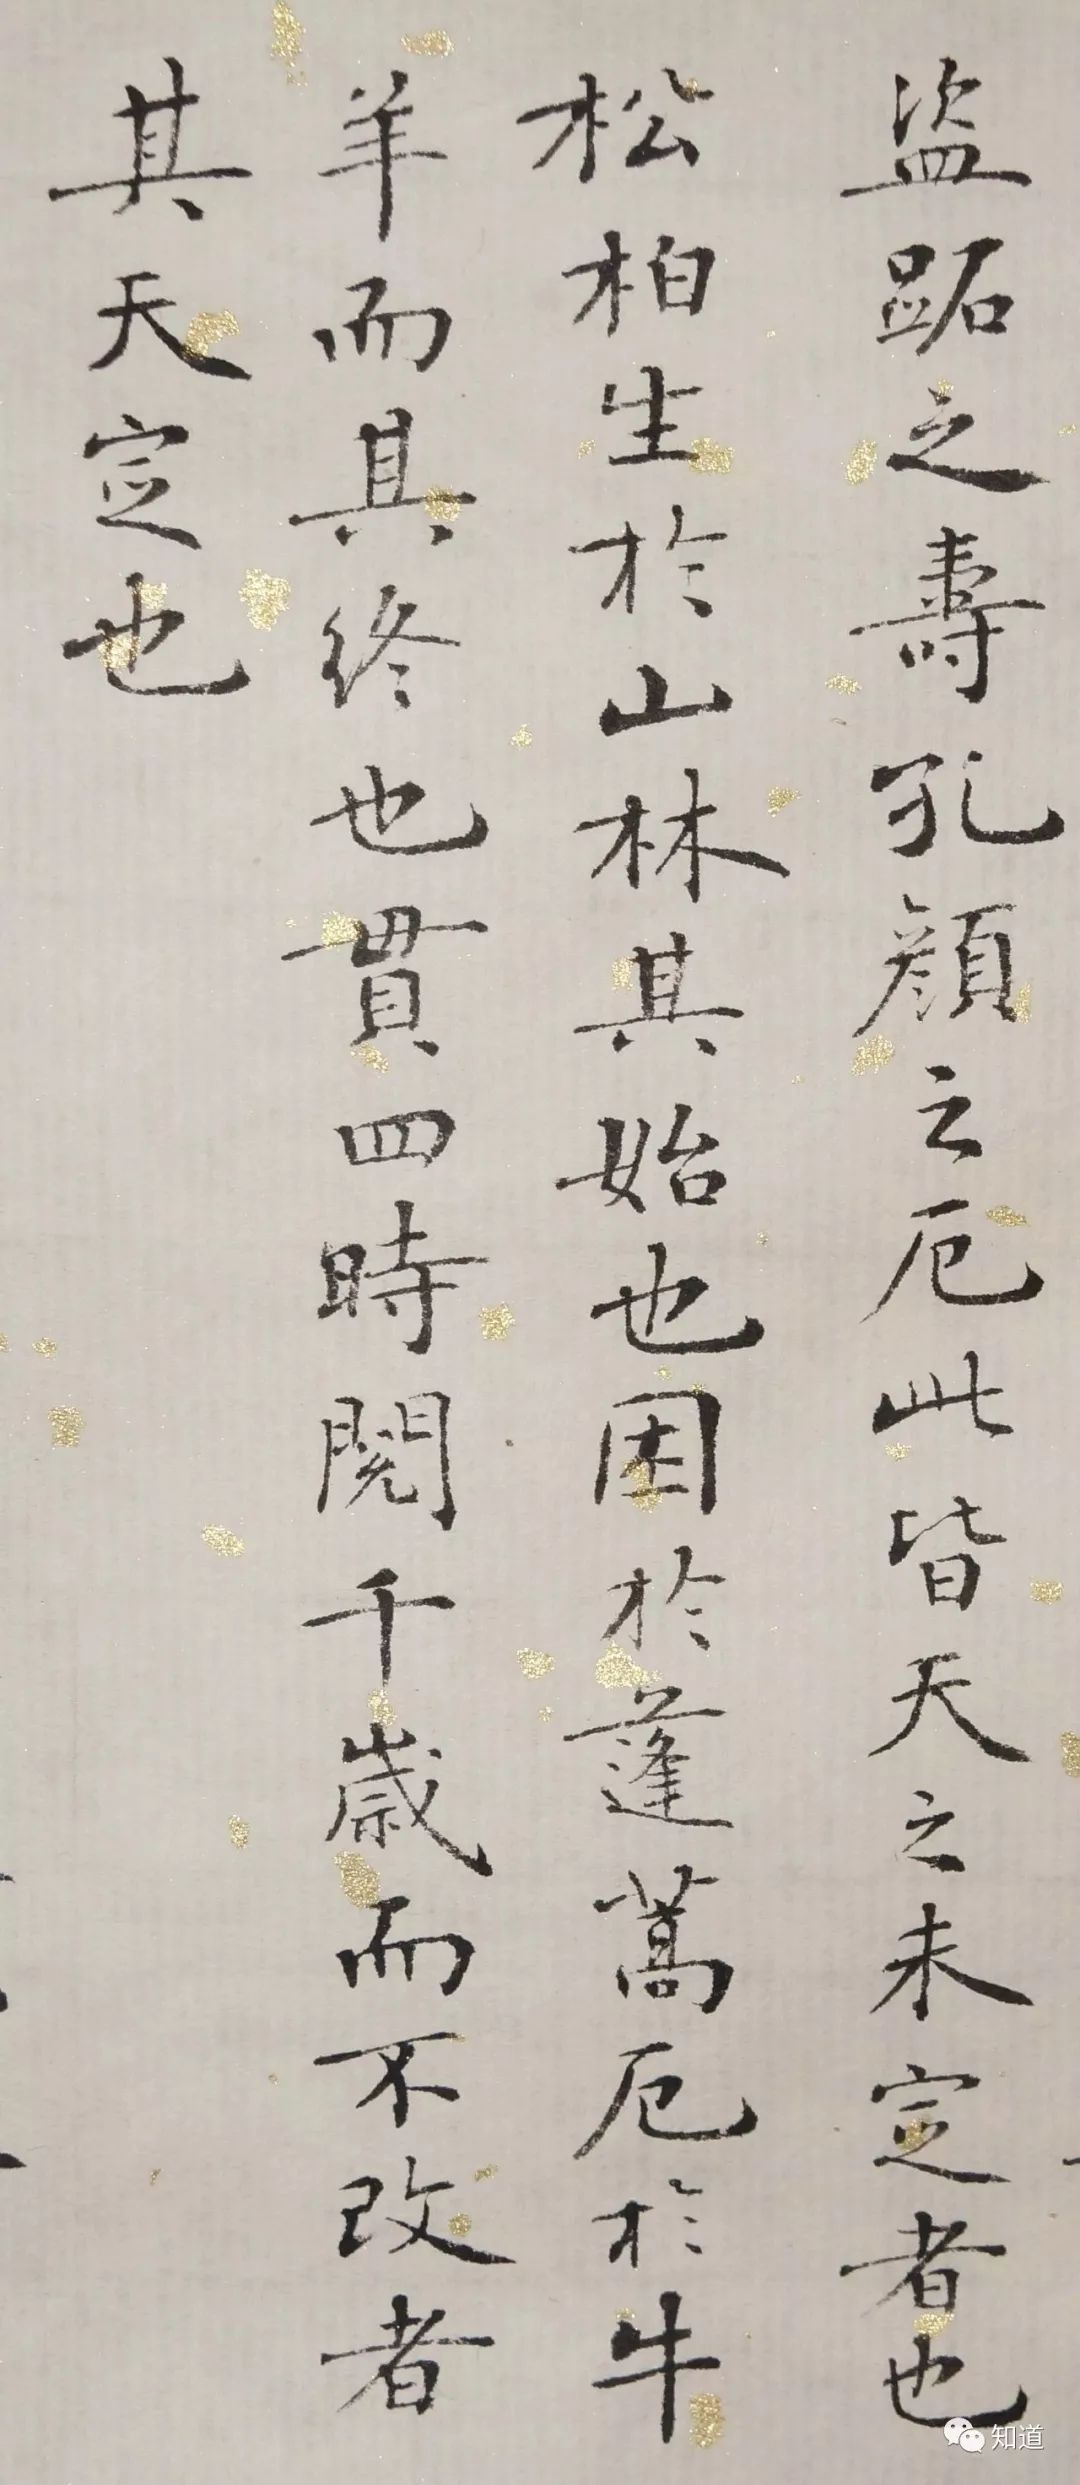 盜跖之壽孔顏之厄此皆天之未定者也
松柏生於山林其始也困於蓬蒿厄於牛
羊而其終也貫四時閱千歲而不改者
其天定也
知道